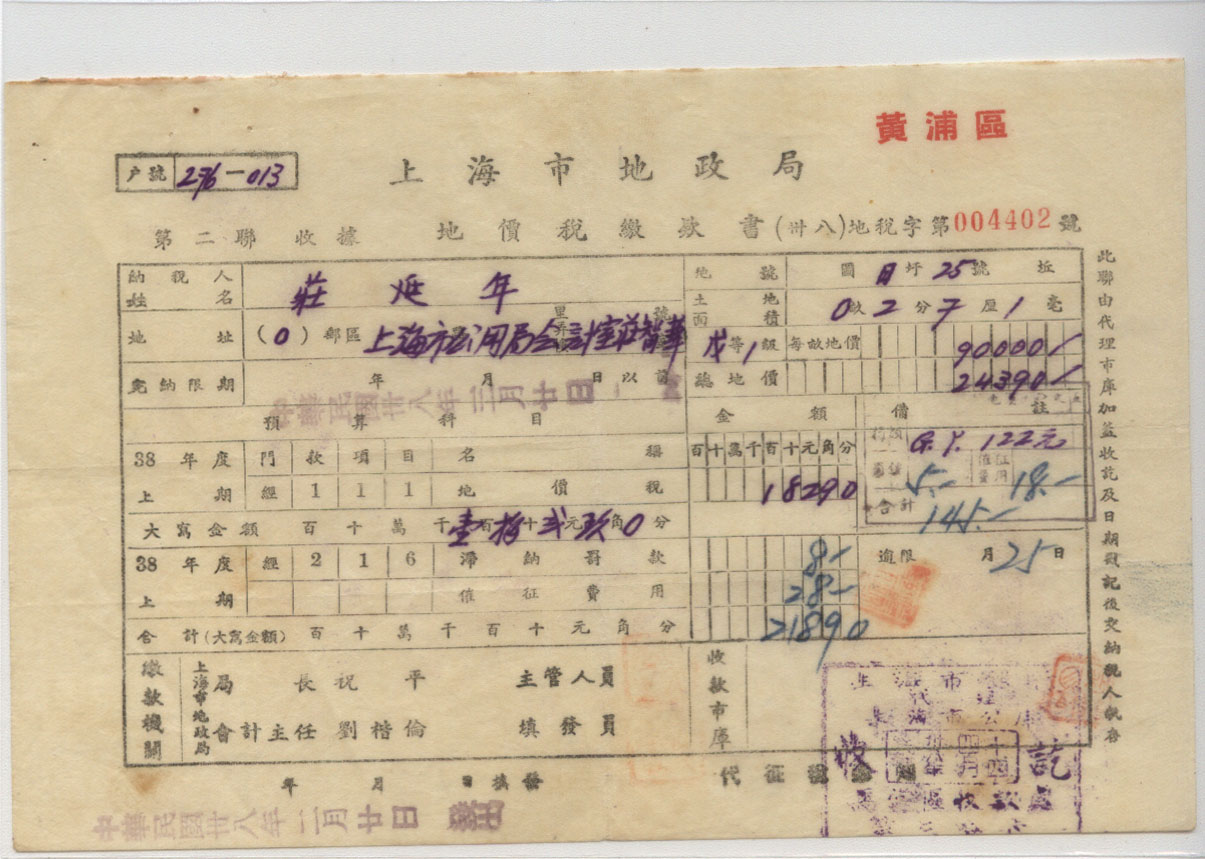 黃浦區
戶號 276-013
上海市地政局
第二聯 收據 地價稅繳款書(卅八)地稅字第004402號
納稅人姓名 莊延年 地號 圖 日 圩 25 號 坵
土地面積 0畝2分7厘1毫
地址 (0)郵區 里弄 號 上海市公用局会計室莊智華 戊等1級 每畝地價 90000/
完納限期 年 月 日以前 總地價 24390/
中華民國卅八年三月廿日
預算科目 金額 備註
38年度 門款項目 名稱 百十萬千百十元角分 G.Y. 122元
上期 經 1 1 1 地價稅 18290 5.- 催征費用 18.-
合計 145.-
大寫金額 百十萬千壹百拾十弍元玖角0分
38年度 經 2 1 6 滯納罰款 8- 逾限 月25日
上期 催征費用 28-
合計(大寫金額) 百十萬千百十元角分 21890
繳款機關 上海市地政局 局長祝平 主管人員 收款市庫
會計主任劉楷倫 填發員
年 月 日填發
中華民國卅八年二月廿日 發出
此聯由代理市庫加蓋收訖及日期戳記後交納稅人執存
收訖